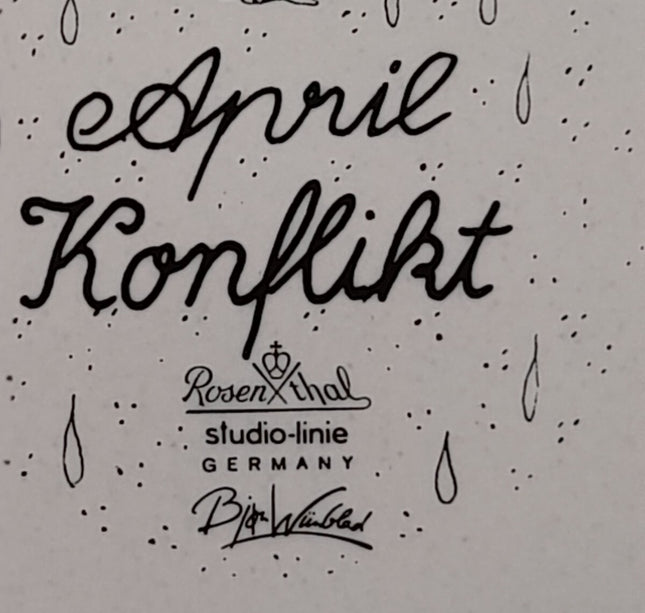 April
Konflikt
Rosenthal
studio-linie
GERMANY
Bjørn Wiinblad